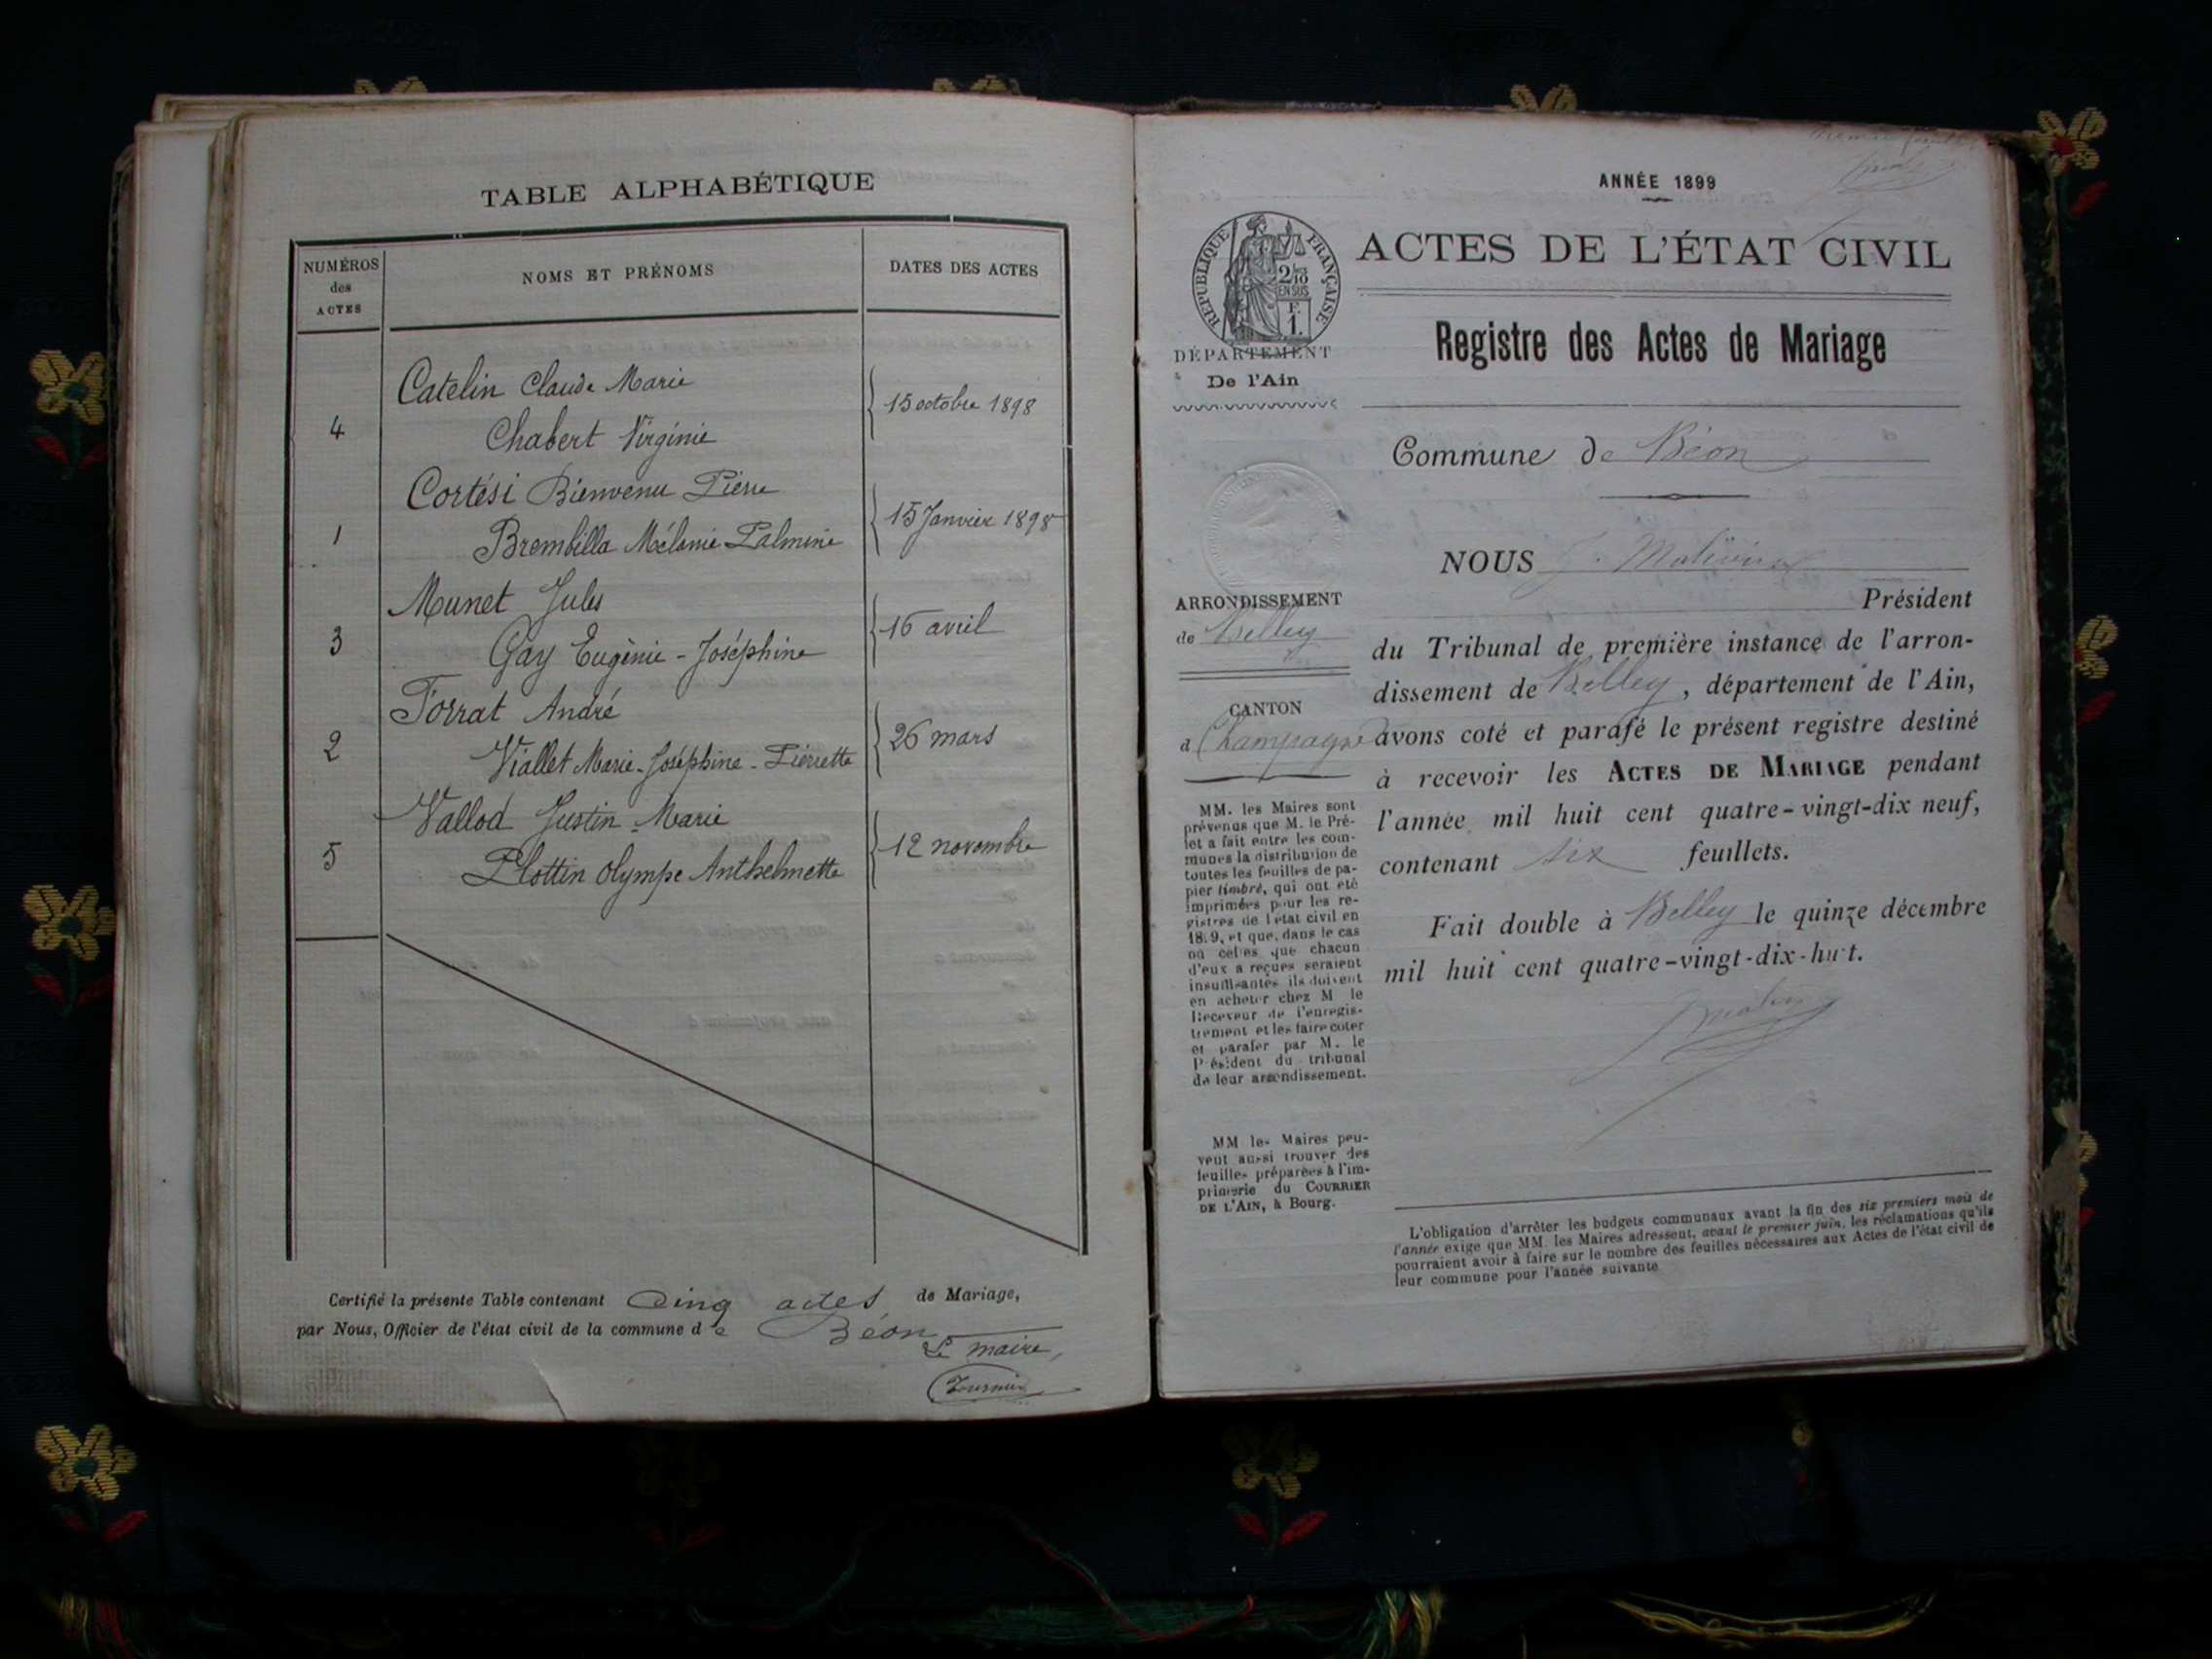 TABLE ALPHABÉTIQUE
NUMÉROS
des
ACTES
NOMS ET PRÉNOMS
DATES DES ACTES
Catelin Claude Marie
4
Chabert Virginie
15 octobre 1898
Cortési Bienvenu Pierre
1
Brembilla Mélanie Palmine
15 Janvier 1898
Munet Jules
3
Gay Eugènie - Joséphine
16 avril
Torrat André
2
Viallet Marie-Joséphine-Pierrette
26 mars
Vallod Justin-Marie
5
Plottin Olympe Anthelmette
12 novembre
Certifié la présente Table contenant Cinq actes de Mariage,
par Nous, Officier de l'état civil de la commune de Béon
Le maire,
ANNÉE 1899
RÉPUBLIQUE FRANÇAISE
2/10
EN SUS
F.
1.
DÉPARTEMENT
De l'Ain
ACTES DE L'ÉTAT CIVIL
Registre des Actes de Mariage
Commune de Béon
ARRONDISSEMENT
de Belley
CANTON
d Champagne
MM. les Maires sont
prévenus que M. le Pré-
fet a fait entre les com-
munes la distribution de
toutes les feuilles de pa-
pier timbré, qui ont été
imprimées pour les re-
gistres de l'état civil en
18.9, et que, dans le cas
où celles que chacun
d'eux a reçues seraient
insuffisantes ils doivent
en acheter chez M le
Receveur de l'enregis-
trement et les faire coter
et parafer par M. le
Président du tribunal
de leur arrondissement.
MM les Maires peu-
vent aussi trouver des
feuilles préparées à l'im-
primerie du COURRIER
DE L'AIN, à Bourg.
NOUS J.
Président
du Tribunal de première instance de l'arron-
dissement de Belley, département de l'Ain,
avons coté et parafé le présent registre destiné
à recevoir les ACTES DE MARIAGE pendant
l'année mil huit cent quatre-vingt-dix neuf,
contenant six feuillets.
Fait double à Belley le quinze décembre
mil huit cent quatre-vingt-dix-huit.
L'obligation d'arrêter les budgets communaux avant la fin des six premiers mois de
l'année exige que MM. les Maires adressent, avant le premier juin, les réclamations qu'ils
pourraient avoir à faire sur le nombre des feuilles nécessaires aux Actes de l'état civil de
leur commune pour l'année suivante